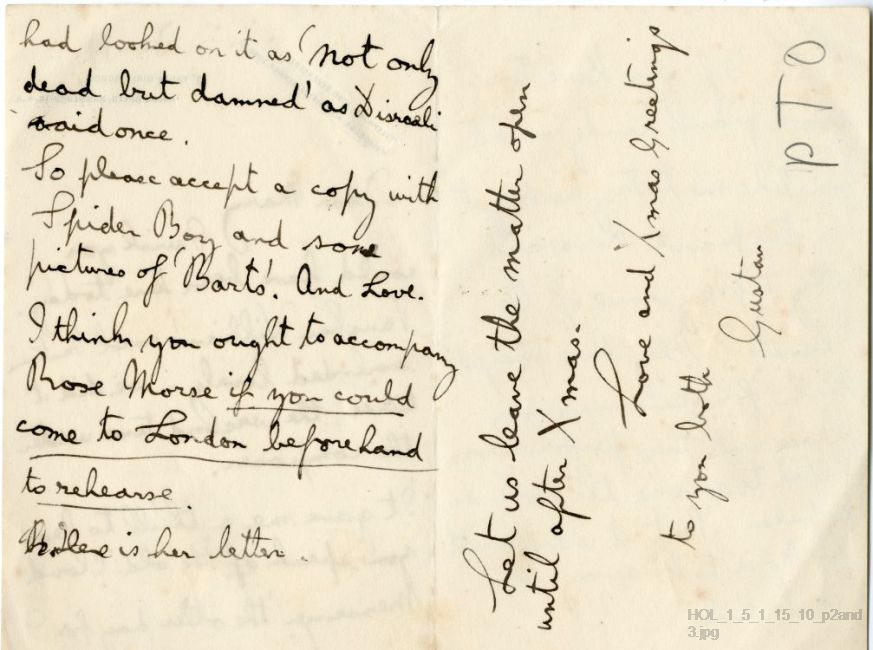 had looked on it as 'not only
dead but damned' as Disraeli
said once.
So please accept a copy with
Spider Boy and some
pictures of 'Barts'. And Love.
I think you ought to accompany
Rose Morse if you could
come to London beforehand
to rehearse.
Here is her letter.
Let us leave the matter open
until after Xmas.
Love and Xmas Greetings
to you both
Gustav
PTO
HOL_1_5_1_15_10_p2and
3.jpg